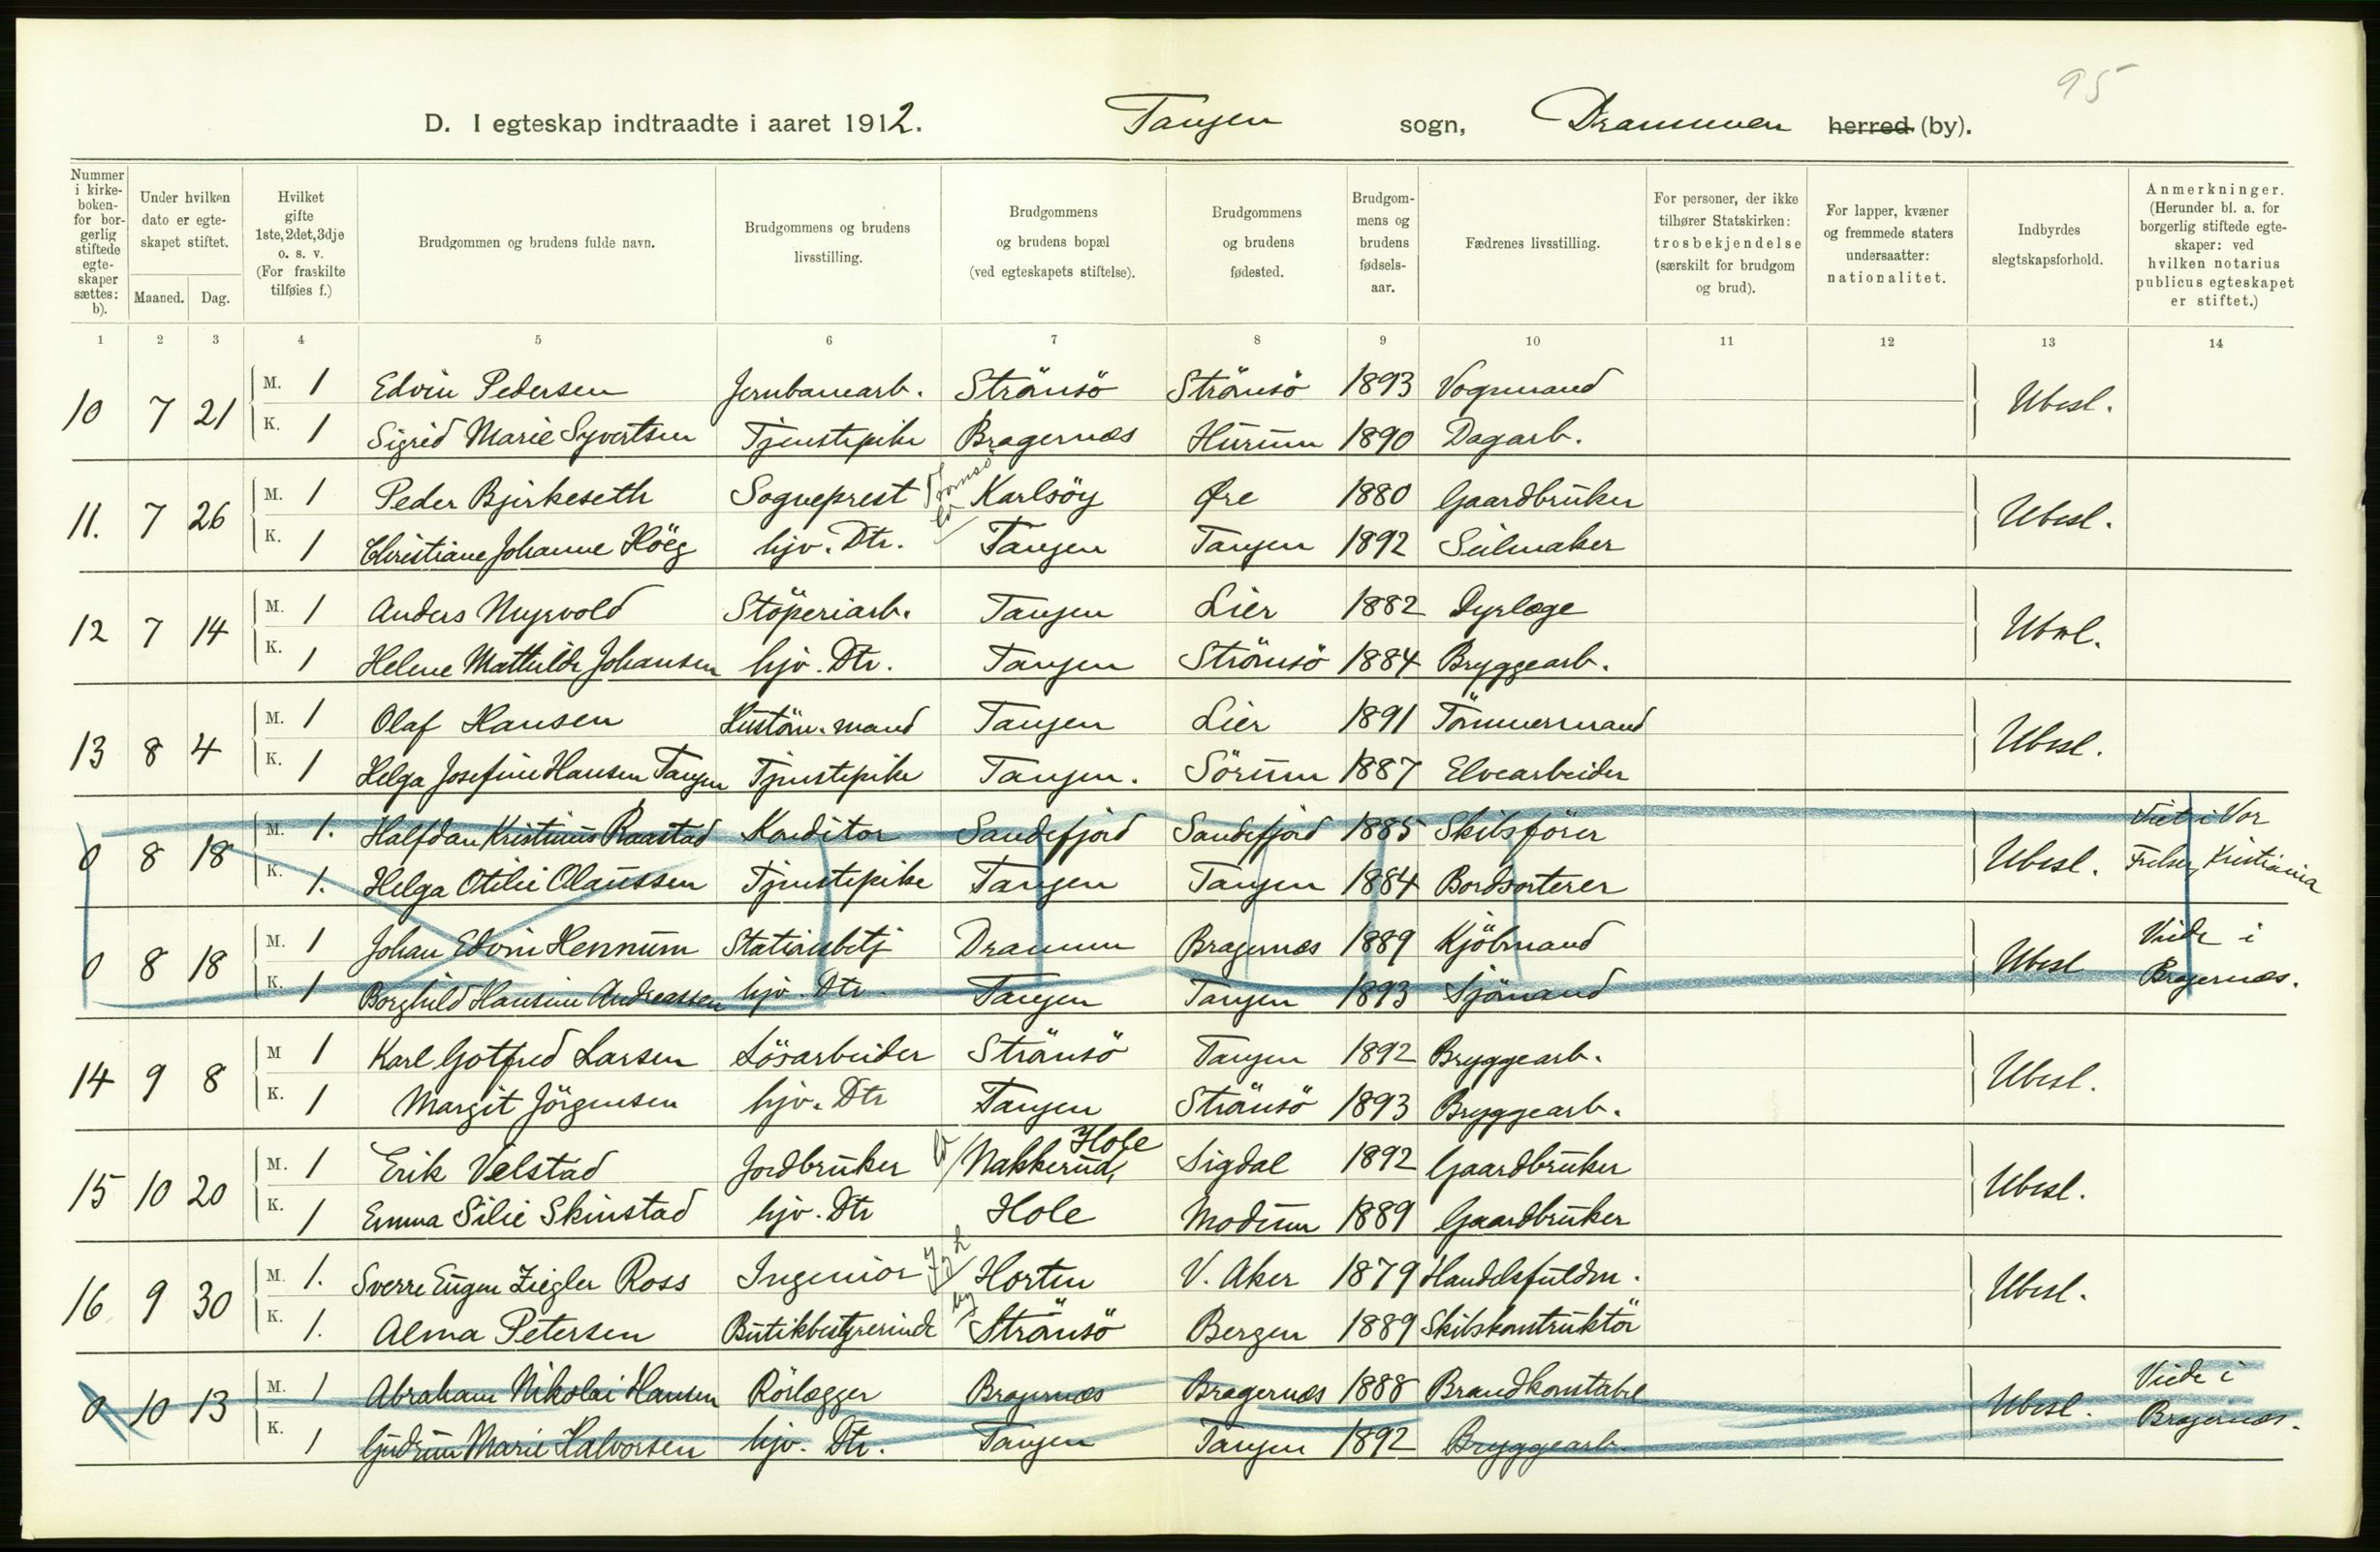 95
D. I egteskap indtraadte i aaret 1912. Tangen sogn, Drammen herred (by).
Nummer i kirkeboken for borgerlig stiftede egteskaper sættes: b).
Under hvilken dato er egteskapet stiftet.
Maaned. Dag.
Hvilket gifte 1ste, 2det, 3dje o. s. v. (For fraskilte tilføies f.)
Brudgommen og brudens fulde navn.
Brudgommens og brudens livsstilling.
Brudgommens og brudens bopæl (ved egteskapets stiftelse).
Brudgommens og brudens fødested.
Brudgommens og brudens fødselsaar.
Fædrenes livsstilling.
For personer, der ikke tilhører Statskirken: trosbekjendelse (særskilt for brudgom og brud).
For lapper, kvæner og fremmede staters undersaatter: nationalitet.
Indbyrdes slegtskapsforhold.
Anmerkninger. (Herunder bl. a. for borgerlig stiftede egteskaper: ved hvilken notarius publicus egteskapet er stiftet.)
1 2 3 4 5 6 7 8 9 10 11 12 13 14
10 7 21 M. 1 Edvin Pedersen Jernbanearb. Strömsö Strömsö 1893 Vognmand Ubesl.
K. 1 Sigrid Marie Syvertsen Tjenestepike Bragernæs Hurum 1890 Dagarb.
11. 7 26 M. 1 Peder Bjerkeseth Sogneprest Tromsö Karlsöy Øre 1880 Gaardbruker Ubesl.
K. 1 Christiane Johanne Höeg hjv. Dtr. Tangen Tangen 1892 Seilmaker
12 7 14 M. 1 Anders Myrvold Stöperiarb. Tangen Lier 1882 Dyrlæge Ubesl.
K. 1 Helene Mathilde Johansen hjv. Dtr. Tangen Strömsö 1884 Bryggearb.
13 8 4 M. 1 Olaf Hansen Hustöm.mand Tangen Lier 1891 Tömmermand Ubesl.
K. 1 Helga Josefine Hansen Tangen Tjenestepike Tangen. Sörum 1887 Elvearbeider
0 8 18 M. 1. Halfdan Kristinius Raastad Konditor Sandefjord Sandefjord 1885 Skibsförer Ubesl. Viet i Vor
K. 1. Helga Otilie Olaussen Tjenestepike Tangen Tangen 1884 Bordsorterer Frelser, Kristiania
0 8 18 M. 1 Johan Edvin Hennum Stationsbetj Drammen Bragernæs 1889 Kjöbmand Ubesl Viede i
K. 1 Borghild Hansine Andreassen hjv. Dtr. Tangen Tangen 1893 Sjömand Bragernæs.
14 9 8 M 1 Karl Gotfred Larsen Lösarbeider Strömsö Tangen 1892 Bryggearb. Ubesl.
K. 1 Margit Jörgensen hjv. Dtr Tangen Strömsö 1893 Bryggearb.
15 10 20 M. 1 Erik Velstad Jordbruker ld Nakkerud, Hole Sigdal 1892 Gaardbruker Ubesl.
K. 1 Emma Silie Skinstad hjv. Dtr Hole Modum 1889 Gaardbruker
16 9 30 M. 1. Sverre Eugen Ziegler Ross Ingeniör Horten V. Aker 1879 Handelsfuldm. Ubesl.
K. 1. Alma Petersen Butikbestyrerinde by Strömsö Bergen 1889 Skibskonstruktör
0 10 13 M. 1 Abraham Nikolai Hansen Rörlægger Bragernæs Bragernæs 1888 Brandkonstabel Ubesl. Viede i
K. 1 Gudrun Marie Halvorsen hjv. Dtr. Tangen Tangen 1892 Bryggearb. Bragernæs.